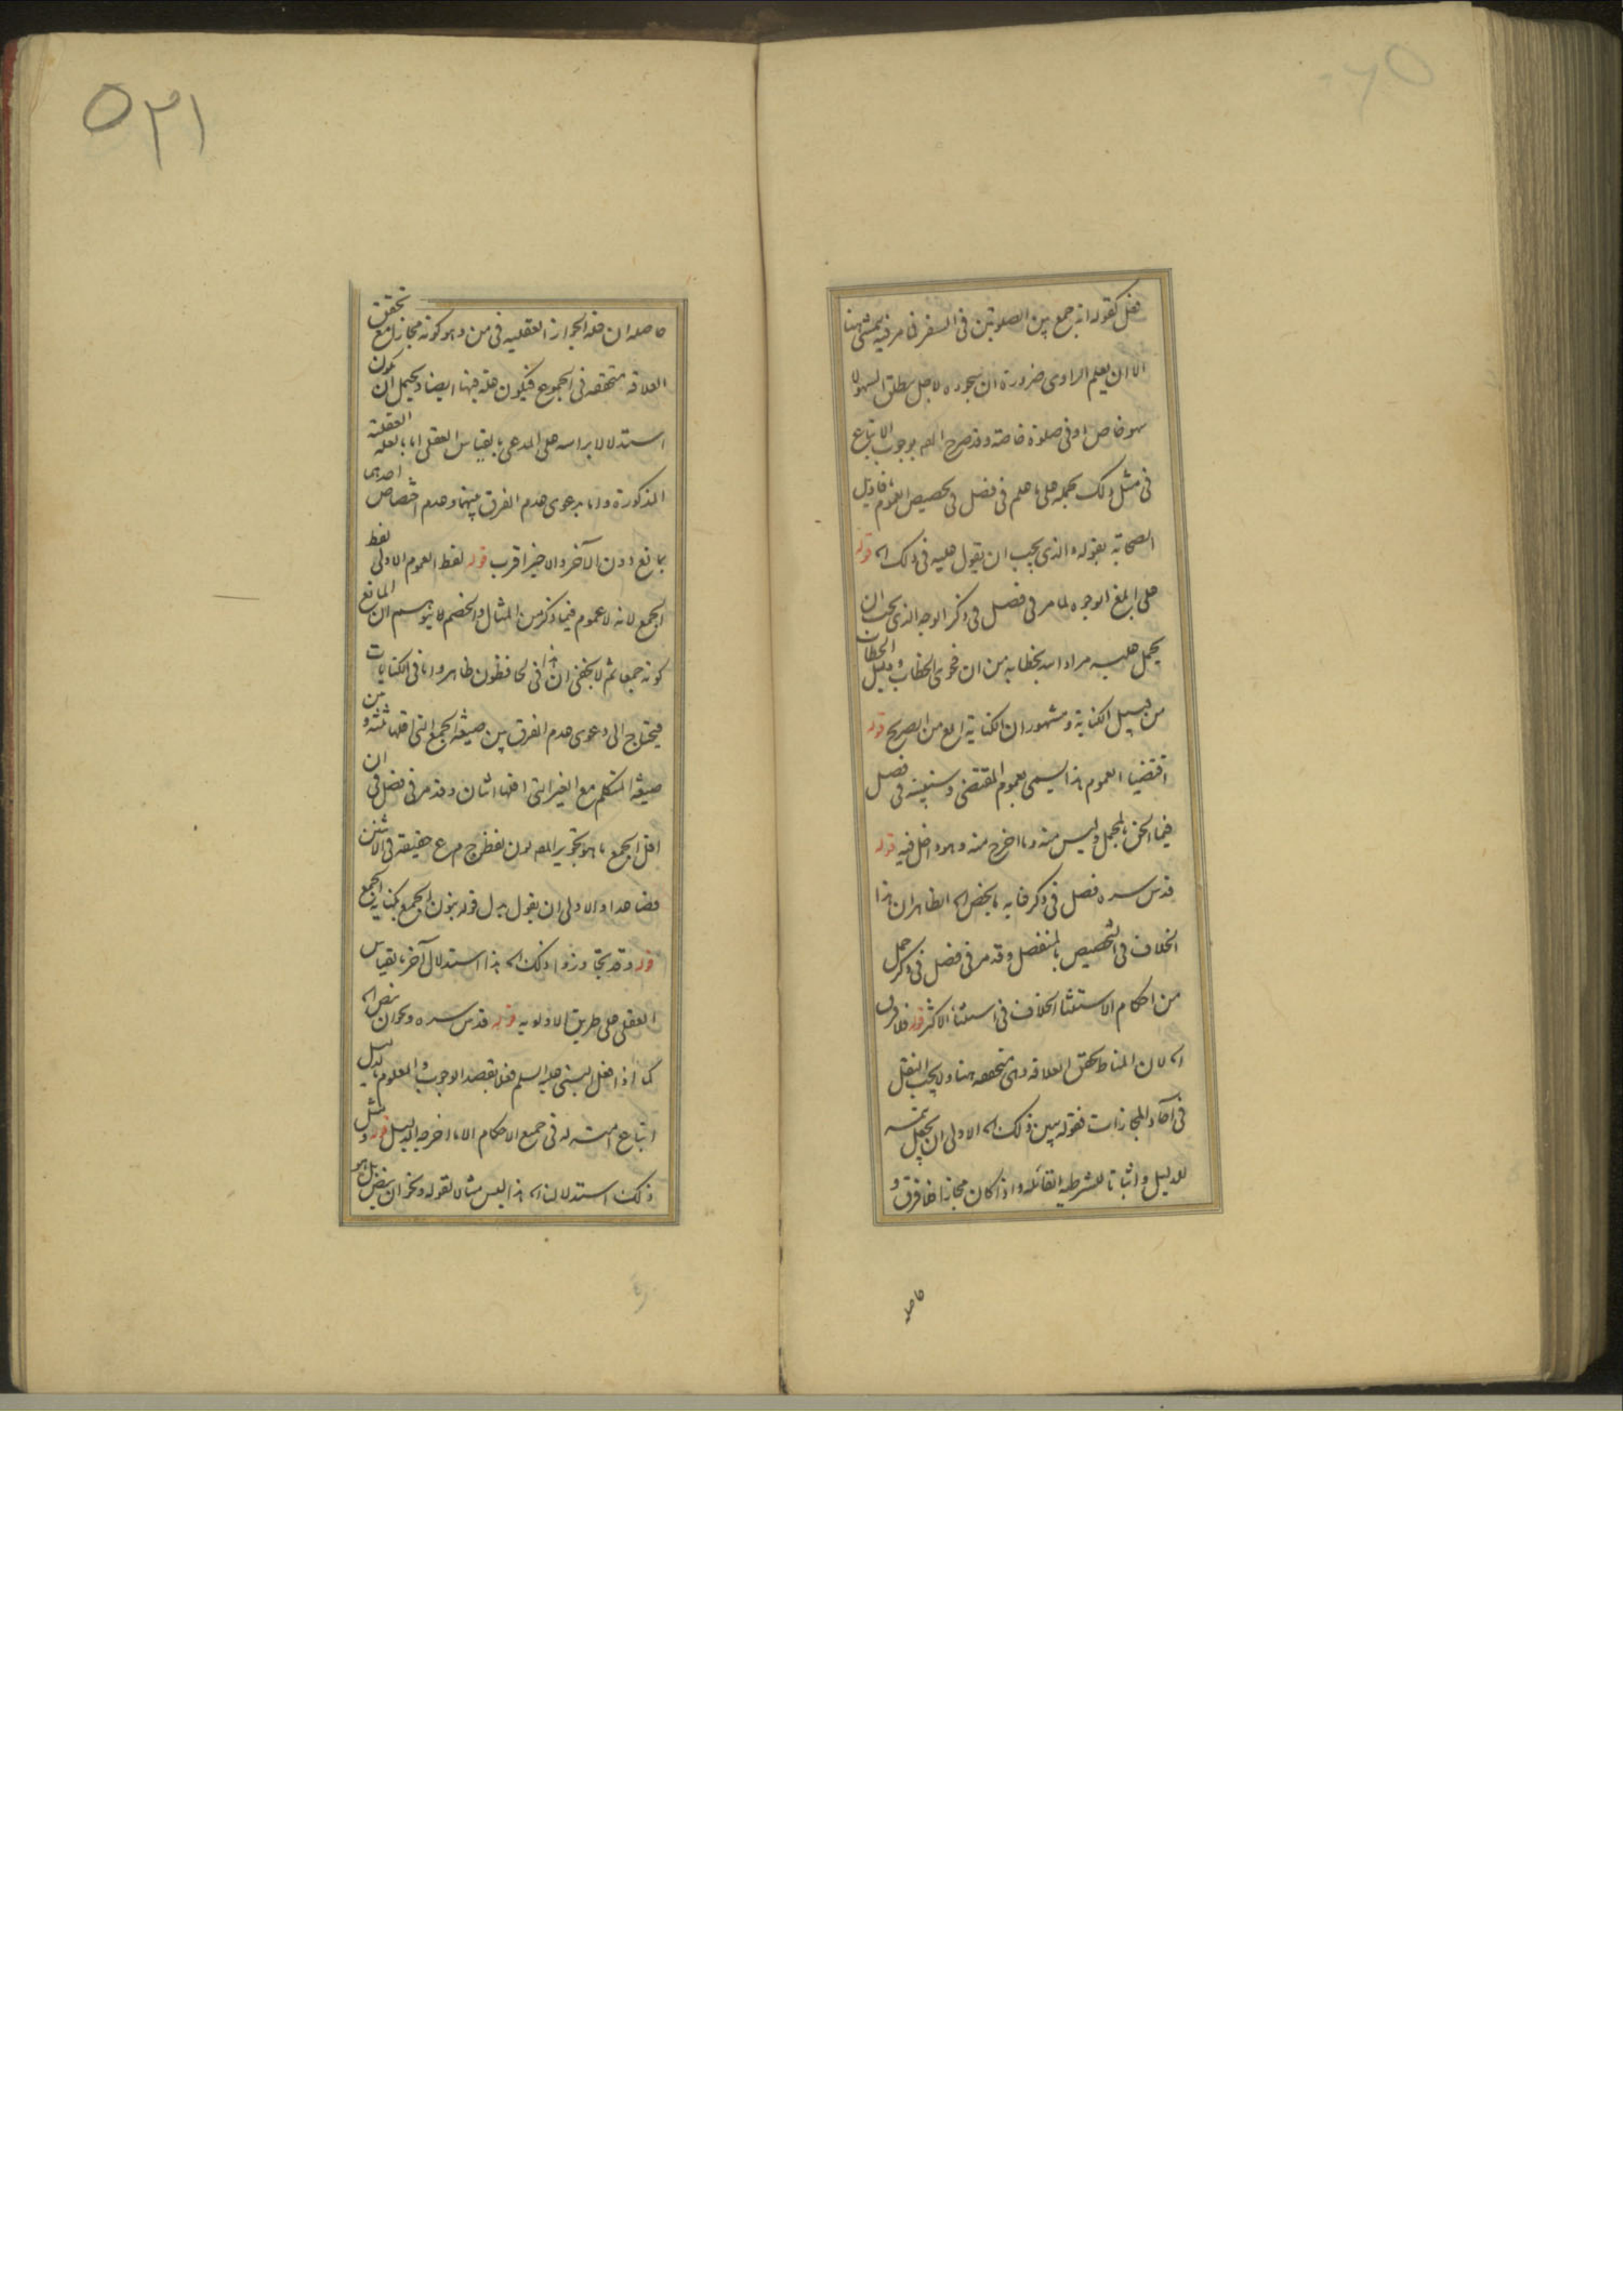 فعل كقوله انه جمع بين الصلوتين فى السفر فما مر فيه يمشى ههنا
الا ان يعلم الراوى ضرورة ان سجوده لاجل مطلق السهو لا
سهو خاص او فى صلوة خاصة وقد صرح المص بوجوب الاتباع
فى مثل ذلك بحمله على ما علم فى فصل فى تخصيص العموم باقاويل
الصحابة بقوله والذى يجب ان يقول عليه فى ذلك اه قوله
على ابلغ الوجوه لما مر فى فصل فى ذكر الوجه الذى يجب ان
يحمل عليه مراد الله بخطابه من ان فحوى الخطاب ودليل الخطاب
من قبيل الكناية ومشهور ان الكناية ابلغ من الصريح قوله
اقتضيا العموم هذا يسمى بعموم المقتضى وسنبينه فى فصل
فيما الحق بالمجمل وليس منه وما اخرج منه وهو داخل فيه قوله
قدس سره فصل فى ذكر غاية ما يخص اه الظاهر ان هذا
الخلاف فى التخصيص بالمنفصل وقد مر فى فصل فى ذكر جمل
من احكام الاستثنا الخلاف فى استثنا الاكثر قوله فلا فرق
اه لان المناط تحقق العلاقة وهى متحققه هنا ولا يجب النقل
فى آحاد المجازات فقوله يبين ذلك اه الاولى ان يجعل تتمه
للدليل واثباتا للشرطيه القائله واذا كان مجازا فما فرق و
حاصله
٥٢١
حاصله ان علة الجواز العقليه فى من وهو كونه مجازا مع تحقق
العلاقه متحققه فى الجموع فيكون علة فيها ايضا ويحتمل ان يكون
استدلالا براسه على المدعى بالقياس العقلى اما بالعله العقلية
المذكورة واما بدعوى عدم الفرق بينهما وعدم اختصاص احدهما
بمانع دون الآخر والاخير اقرب قوله لفظ العموم الاولى لفظ
الجمع لانه لا عموم فيما ذكر من المثال والخصم لا يتوهم ان المانع
كونه جمعا ثم لا يخفى ان هذا فى لحافظون ظاهر واما فى الكنايات
فيحتاج الى دعوى عدم الفرق بين صيغة الجمع التى اقلها ثلثة و من
صيغة المتكلم مع الغير التى اقلها اثنان وقد مر فى فصل فى ان
اقل الجمع ما هو تجويز المص لون لفظ ج م ع حقيقة فى الاثنين
فصاعدا والاولى ان يقول بدل قوله بنون الجمع بكناية الجمع
قوله وقد تجاوزوا ذلك اه هذا استدلال آخر بالقياس
العقلى على طريق الاولويه قوله قدس سره ونحو ان ينص اه
كما اذا فعل النبى عليه السلم فعلا بقصد الوجوب والمعلوم بالدليل
اتباع امته له فى جميع الاحكام الا ما اخرجه الدليل قوله ومثل
ذلك استدلالنا اه هذا ليس مثالا لقوله ونحو ان ينص بل هو